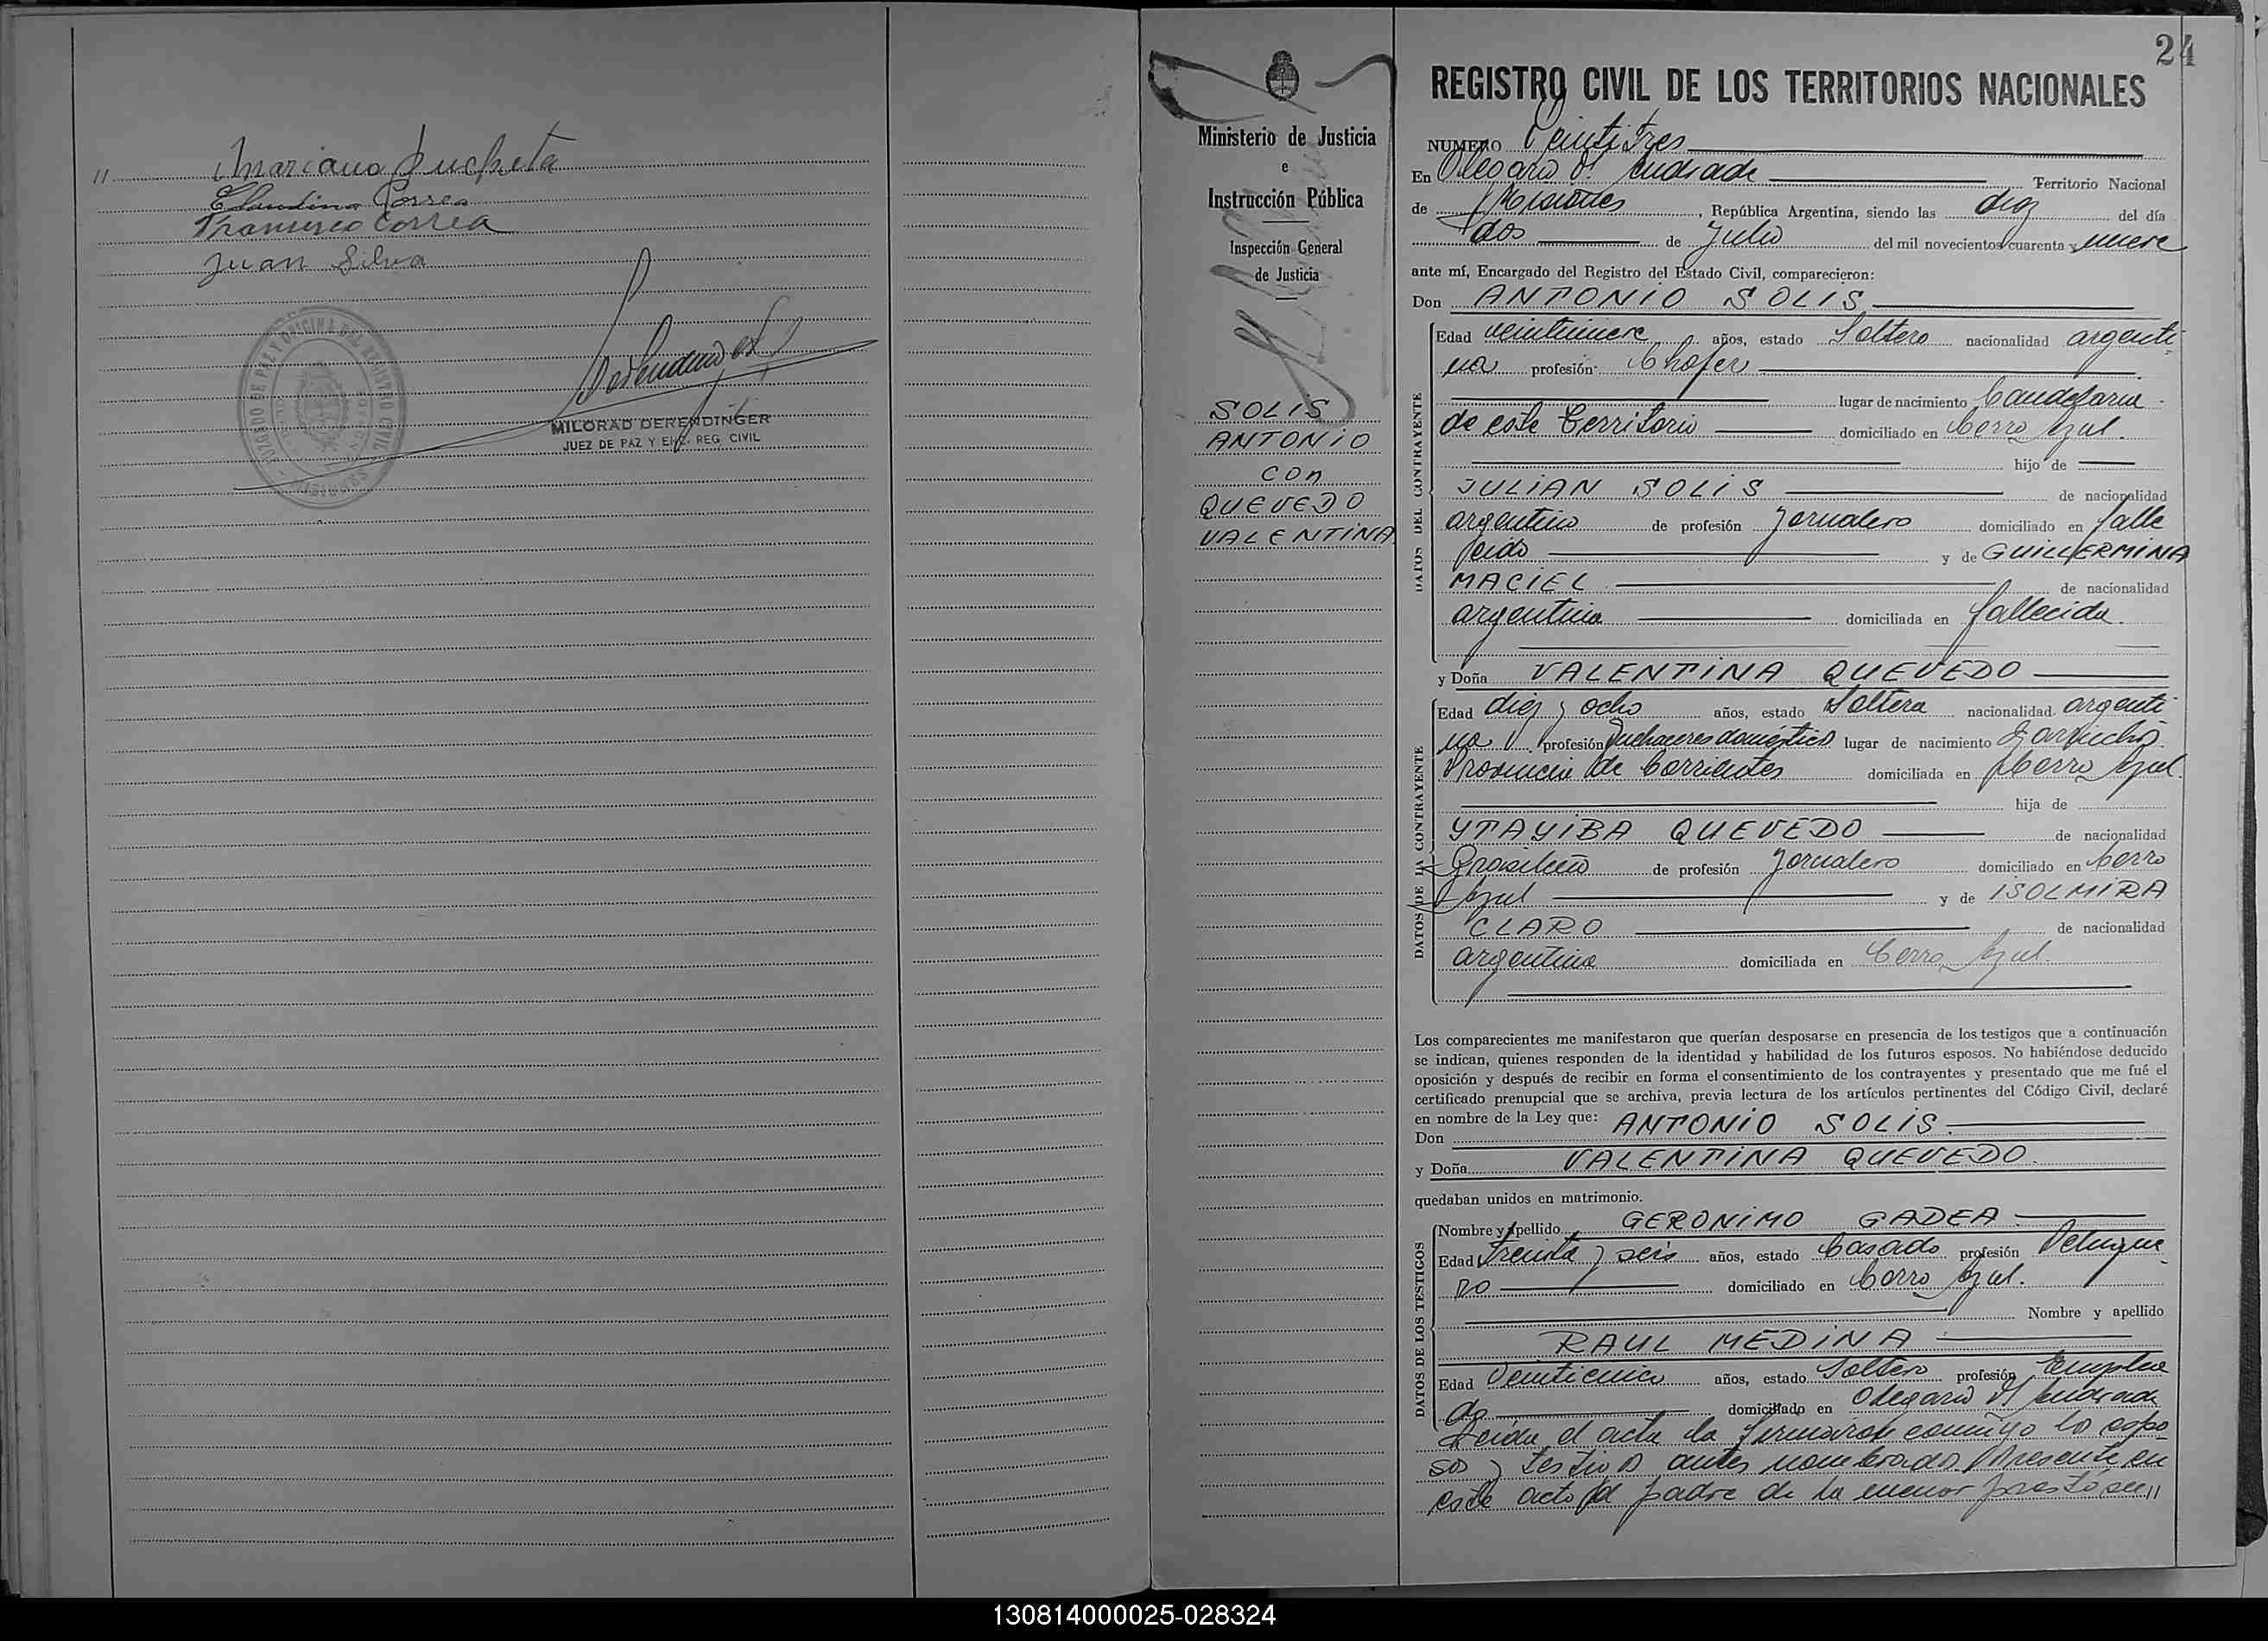 " Mariano Sucheta
Claudino Correa
Francisco Correa
Juan Silva
JUZGADO DE PAZ Y OFICINA DEL REGISTRO CIVIL
MILORAD DERENDINGER
JUEZ DE PAZ Y ENC. REG. CIVIL
Ministerio de Justicia
e
Instrucción Pública
Inspección General
de Justicia
SOLIS
ANTONIO
CON
QUEVEDO
VALENTINA
24
REGISTRO CIVIL DE LOS TERRITORIOS NACIONALES
NUMERO Veintitres
En Olegario V. Andrade Territorio Nacional
de Misiones, República Argentina, siendo las diez del día
dos de Julio del mil novecientos cuarenta y nueve
ante mí, Encargado del Registro del Estado Civil, comparecieron:
Don ANTONIO SOLIS
DATOS DEL CONTRAYENTE
Edad veintinueve años, estado Soltero nacionalidad argenti-
na profesión Chofer
lugar de nacimiento Candelaria
de este Territorio domiciliado en Cerro Azul.
hijo de
JULIAN SOLIS de nacionalidad
argentino de profesión Jornalero domiciliado en falle
cido y de GUILLERMINA
MACIEL de nacionalidad
argentina domiciliada en fallecida.
y Doña VALENTINA QUEVEDO
DATOS DE LA CONTRAYENTE
Edad diez y ocho años, estado Soltera nacionalidad argenti
na profesión Quehaceres domésticos lugar de nacimiento Garruchos
Provincia de Corrientes domiciliada en Cerro Azul.
hija de
YTAYIBA QUEVEDO de nacionalidad
Brasilera de profesión Jornalero domiciliado en Cerro
Azul y de ISOLMIRA
CLARO de nacionalidad
argentina domiciliada en Cerro Azul.
Los comparecientes me manifestaron que querían desposarse en presencia de los testigos que a continuación
se indican, quienes responden de la identidad y habilidad de los futuros esposos. No habiéndose deducido
oposición y después de recibir en forma el consentimiento de los contrayentes y presentado que me fué el
certificado prenupcial que se archiva, previa lectura de los artículos pertinentes del Código Civil, declaré
en nombre de la Ley que:
Don ANTONIO SOLIS.
y Doña VALENTINA QUEVEDO.
quedaban unidos en matrimonio.
DATOS DE LOS TESTIGOS
Nombre y apellido GERONIMO GADEA
Edad Treinta y seis años, estado Casado profesión Peluque-
ro domiciliado en Cerro Azul.
Nombre y apellido
RAUL MEDINA
Edad Veinticinco años, estado Soltero profesión Emplea
do domiciliado en Olegario V Andrade
Leida el acta la firmaron conmigo los espo-
sos y testigos antes nombrados. Presente en
este acto el padre de la menor prestó su "
130814000025-028324